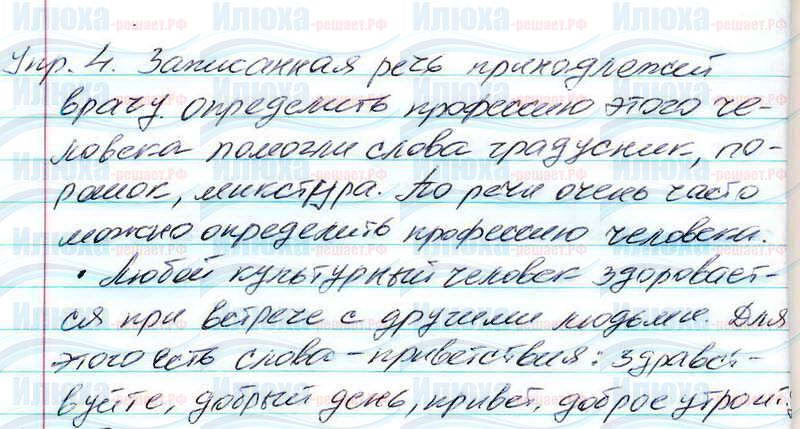 Упр. 4. Записанная речь принадлежит
врачу. определить профессию этого че-
ловека помогли слова градусник, по-
рошок, микстура. По речи очень часто
можно определить профессию человека.
• Любой культурный человек здоровает-
ся при встрече с другими людьми. Для
этого есть слова - приветствия: здравст-
вуйте, добрый день, привет, доброе утро и
Илюха-решает.РФ